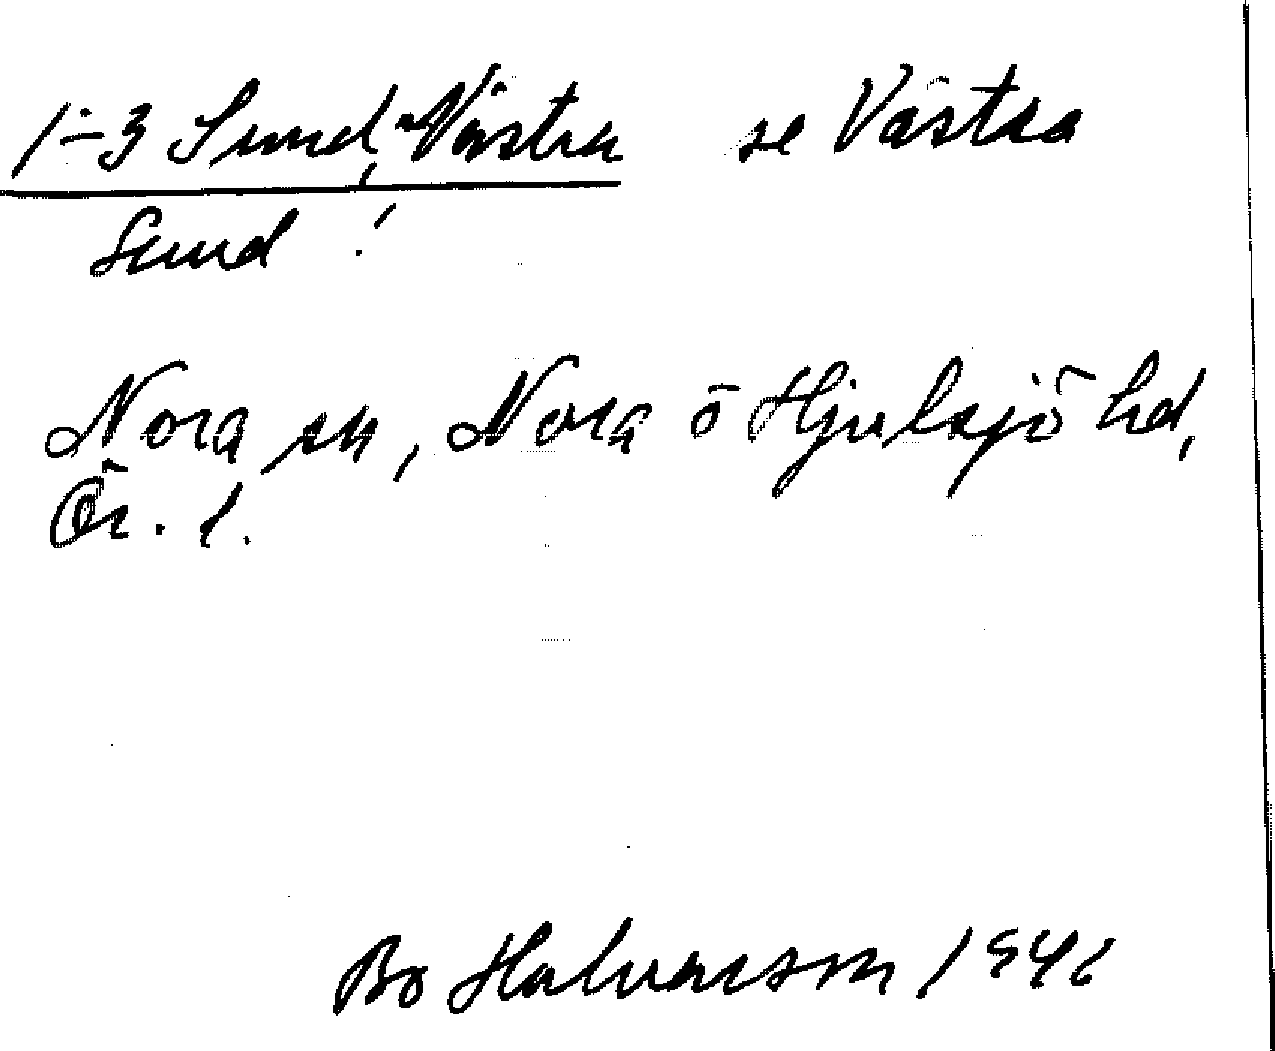 1÷3 Sund, Västra se Västra
Sund !
Nora sn, Nora o Hjulsjö hd,
Ör. l.
Bo Halvarsson 1946